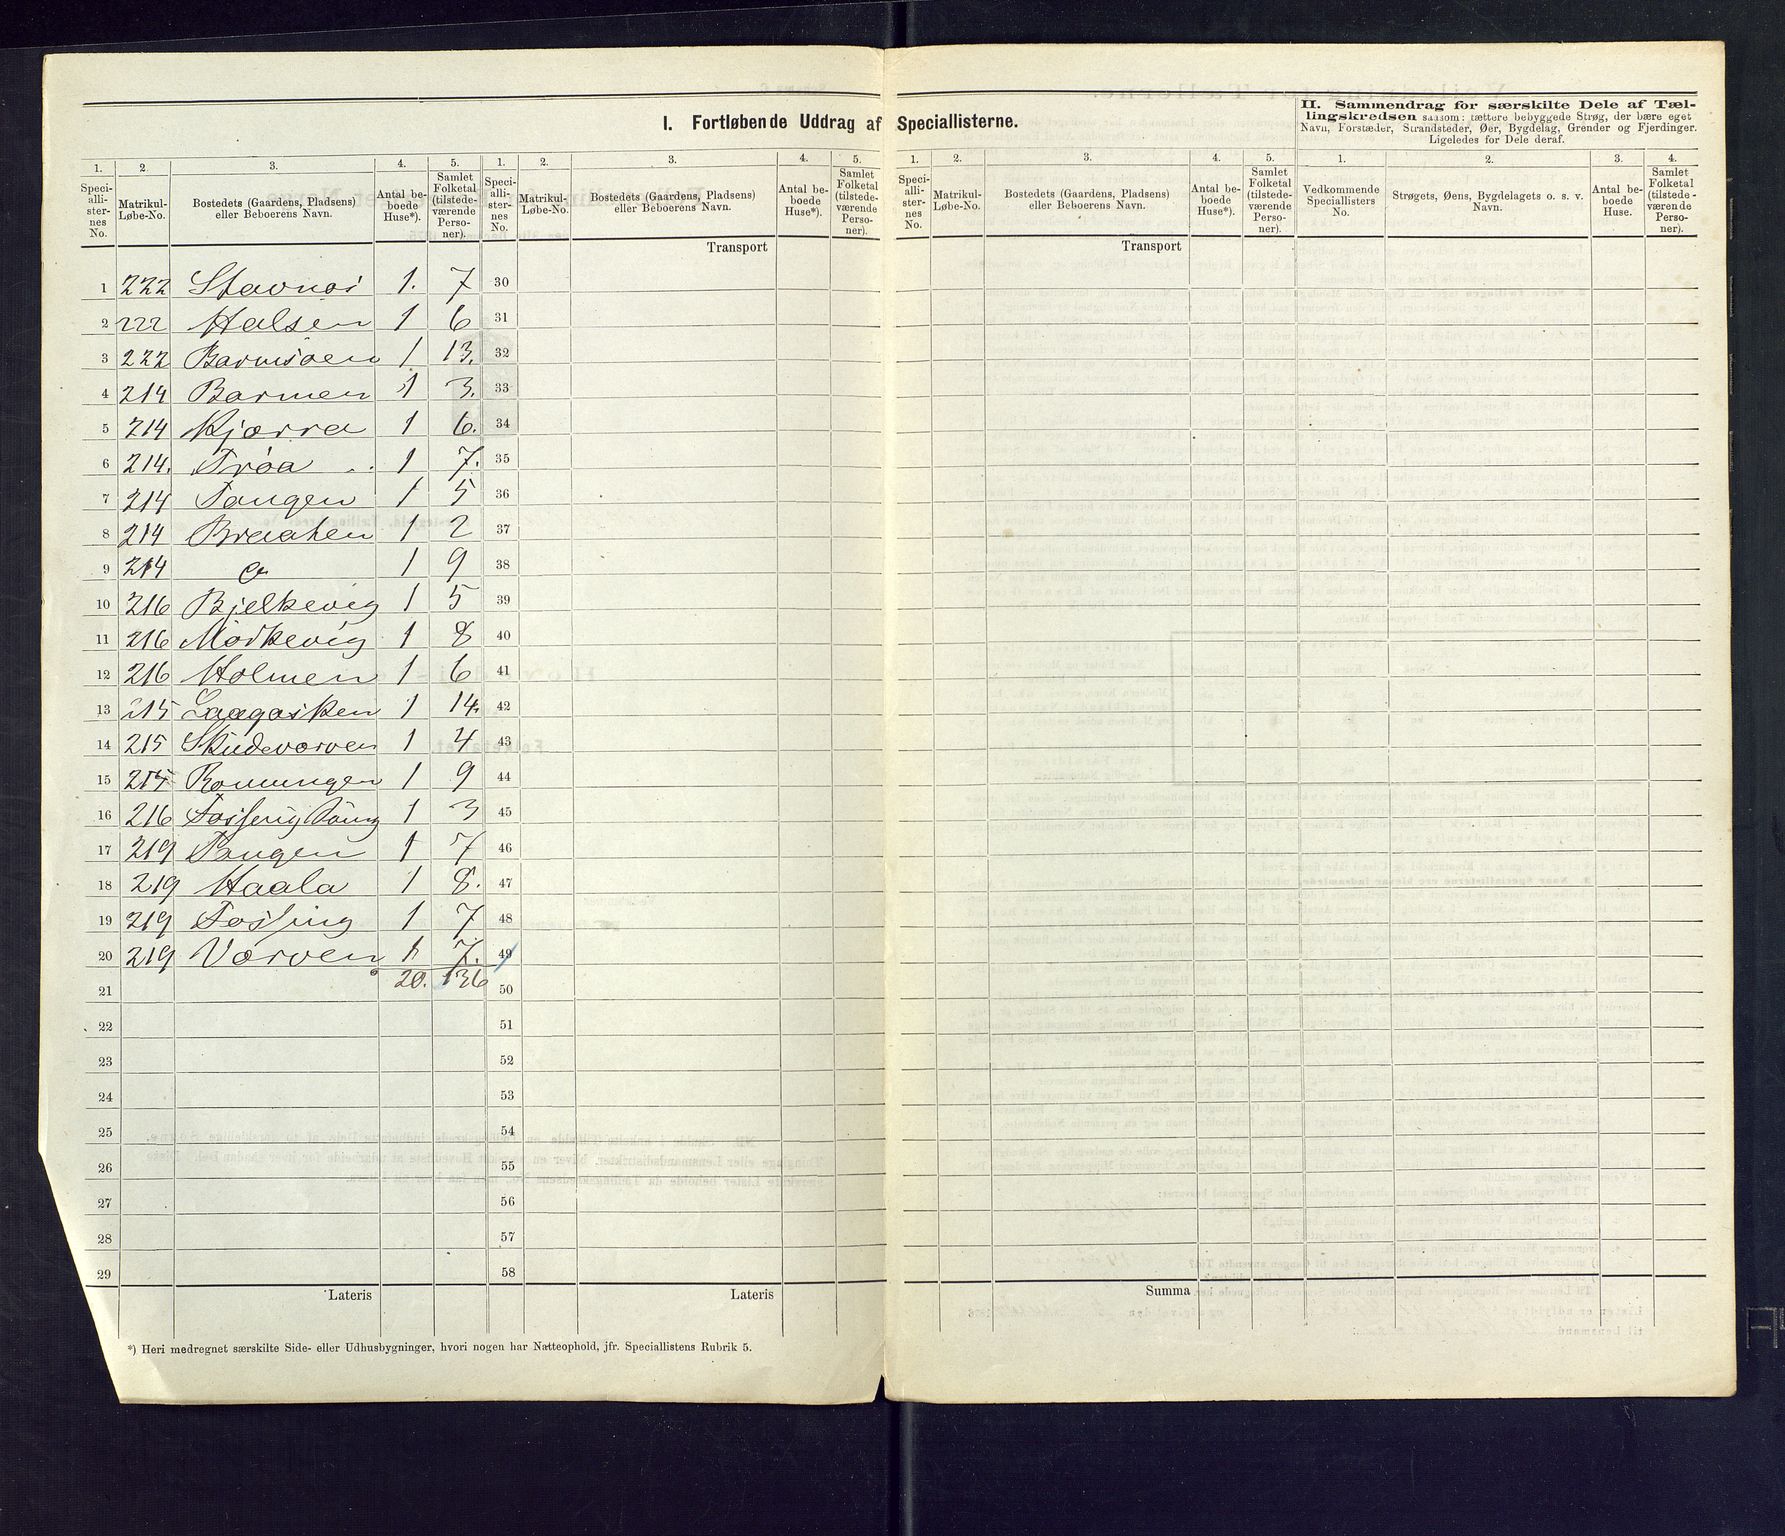 I. Fortløbende Uddrag af Speciallisterne.
II. Sammendrag for særskilte Dele af Tæl-
lingskredsen saasom: tættere bebyggede Strøg, der bære eget
Navn, Forstæder, Strandsteder, Øer, Bygdelag, Grender og Fjerdinger.
Ligeledes for Dele deraf.
1. 2 3. 4. 5. 1. 2. 3. 4. 5. 1. 2. 3. 4. 5. 1. 2. 3. 4.
Speci-
alli-
ster-
nes
No.
Matrikul-
Løbe-No.
Bostedets (Gaardens, Pladsens)
eller Beboerens Navn.
Antal be-
boede
Huse*).
Samlet
Folketal
(tilstede-
værende
Perso-
ner).
Speci-
alli-
ster-
nes
No.
Matrikul-
Løbe-No.
Bostedets (Gaardens, Pladsens)
eller Beboerens Navn.
Antal be-
boede
Huse*).
Samlet
Folketal
(tilstede-
værende
Perso-
ner).
Speci-
alli-
ster-
nes
No.
Matrikul-
Løbe-No.
Bostedets (Gaardens, Pladsens)
eller Beboerens Navn.
Antal be-
boede
Huse*).
Samlet
Folketal
(tilstede-
værende
Perso-
ner).
Vedkommende
Speciallisters
No.
Strøgets, Øens, Bygdelagets o. s. v.
Navn.
Antal be-
boede
Huse.
Samlet
Folketal
(tilstede-
værende
Perso-
ner).
Transport Transport
1 222 Stavnæs 1. 7 30
2 222 Halsen 1 6 31
3 222 Barmsøen 1 13. 32
4 214 Barmen 1 3. 33
5 214 Kjærra 1 6. 34
6 214. Trøa 1 7. 35
7 214 Tangen 1 5 36
8 214 Braaten 1 2 37
9 214 1 9 38
10 216 Bjelkevig 1 5 39
11 216 Mørkevig 1 8 40
12 216 Holmen 1 6 41
13 215 Langøsken 1 14. 42
14 215 Skudeværven 1 4 43
15 214 Rønningen 1 9 44
16 216 1 3 45
17 219 Tangen 1 7 46
18 219 Haala 1 8. 47
19 219 Fossing 1 7 48
20 219 Værven 1 7. 49
21 20. 136 50
22 51
23 52
24 53
25 54
26 55
27 56
28 57
29 58
Lateris Lateris Summa
*) Heri medregnet særskilte Side- eller Udhusbygninger, hvori nogen har Natteophold, jfr. Speciallistens Rubrik 5.